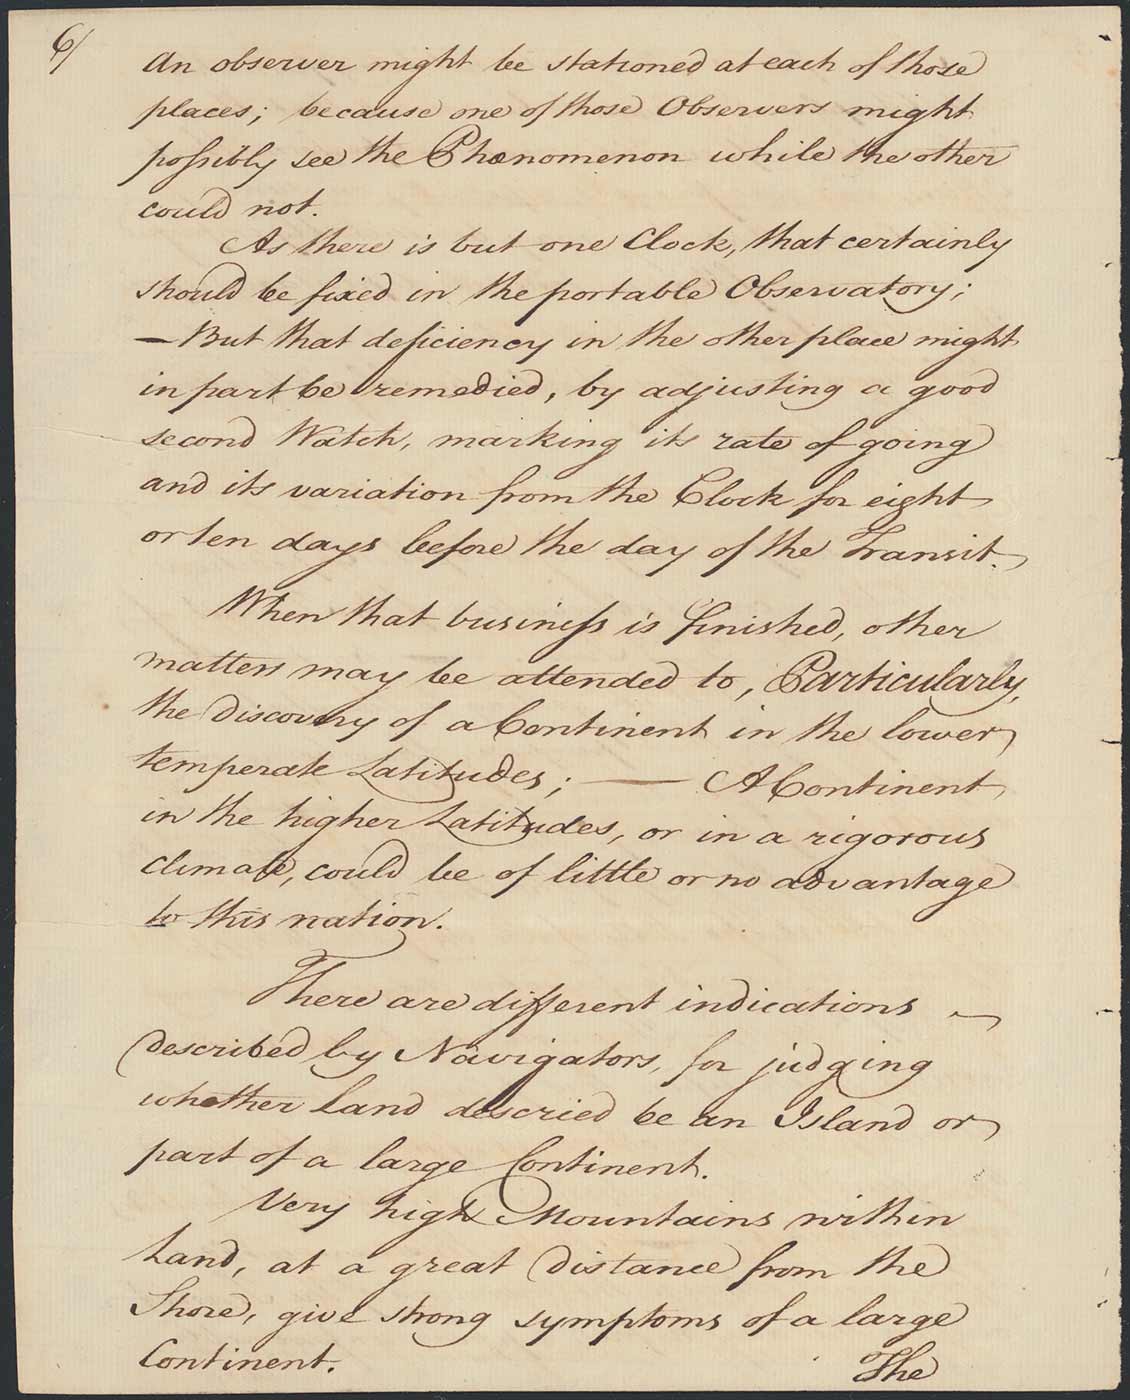 6/
An observer might be stationed at each of those
places; because one of those Observers might
possibly see the Phænomenon while the other
could not.
As there is but one Clock, that certainly
should be fixed in the portable Observatory;
— But that deficiency in the other place might
in part be remedied, by adjusting a good
second Watch, marking its rate of going
and its variation from the Clock for eight
or ten days before the day of the Transit.
When that business is finished, other
matters may be attended to, Particularly,
the discovery of a Continent in the lower
temperate Latitudes; — A Continent
in the higher Latitudes, or in a rigorous
climate, could be of little or no advantage
to this nation.
There are different indications
described by Navigators, for judging
whether Land descried be an Island or
part of a large Continent.
Very high Mountains within
Land, at a great distance from the
Shore, give strong symptoms of a large
Continent.
The